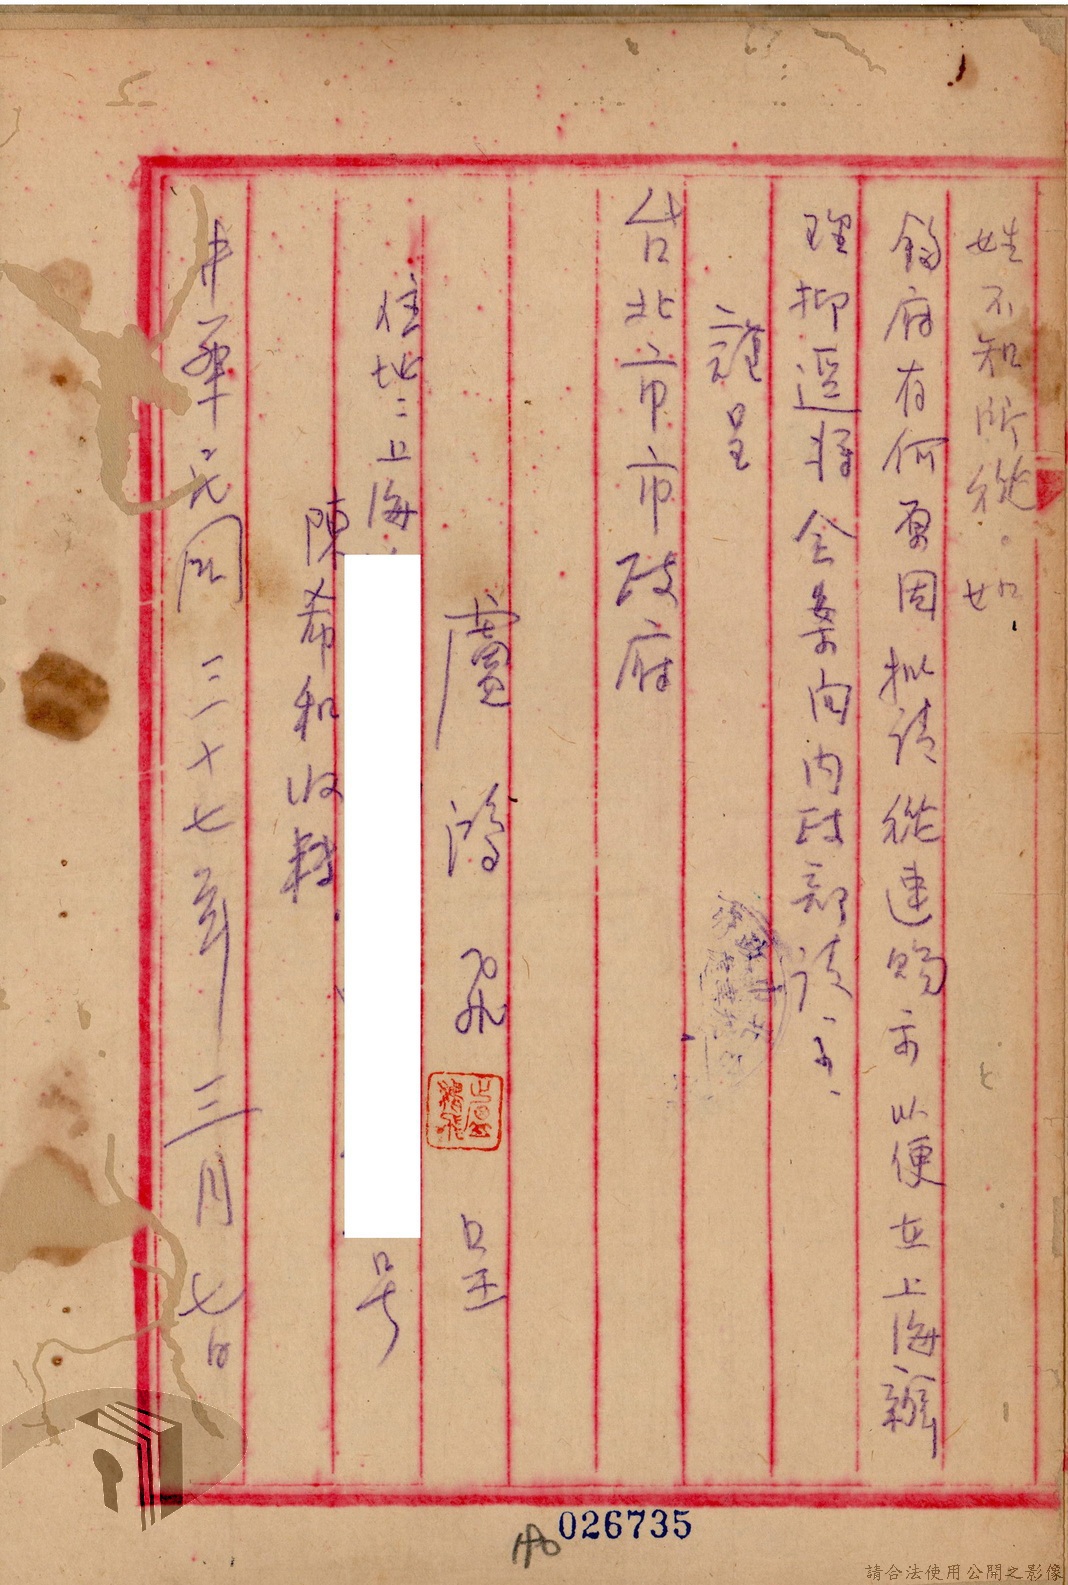 姓不知所從。如
鈞府有何原因批請從速賜示以便在上海辦
理抑逕將全案向內政部請示
謹呈
台北市市政府
盧鴻飛 呈
住址：上海 号
陳希和收轉
中華民國三十七年三月七日
026735
請合法使用公開之影像